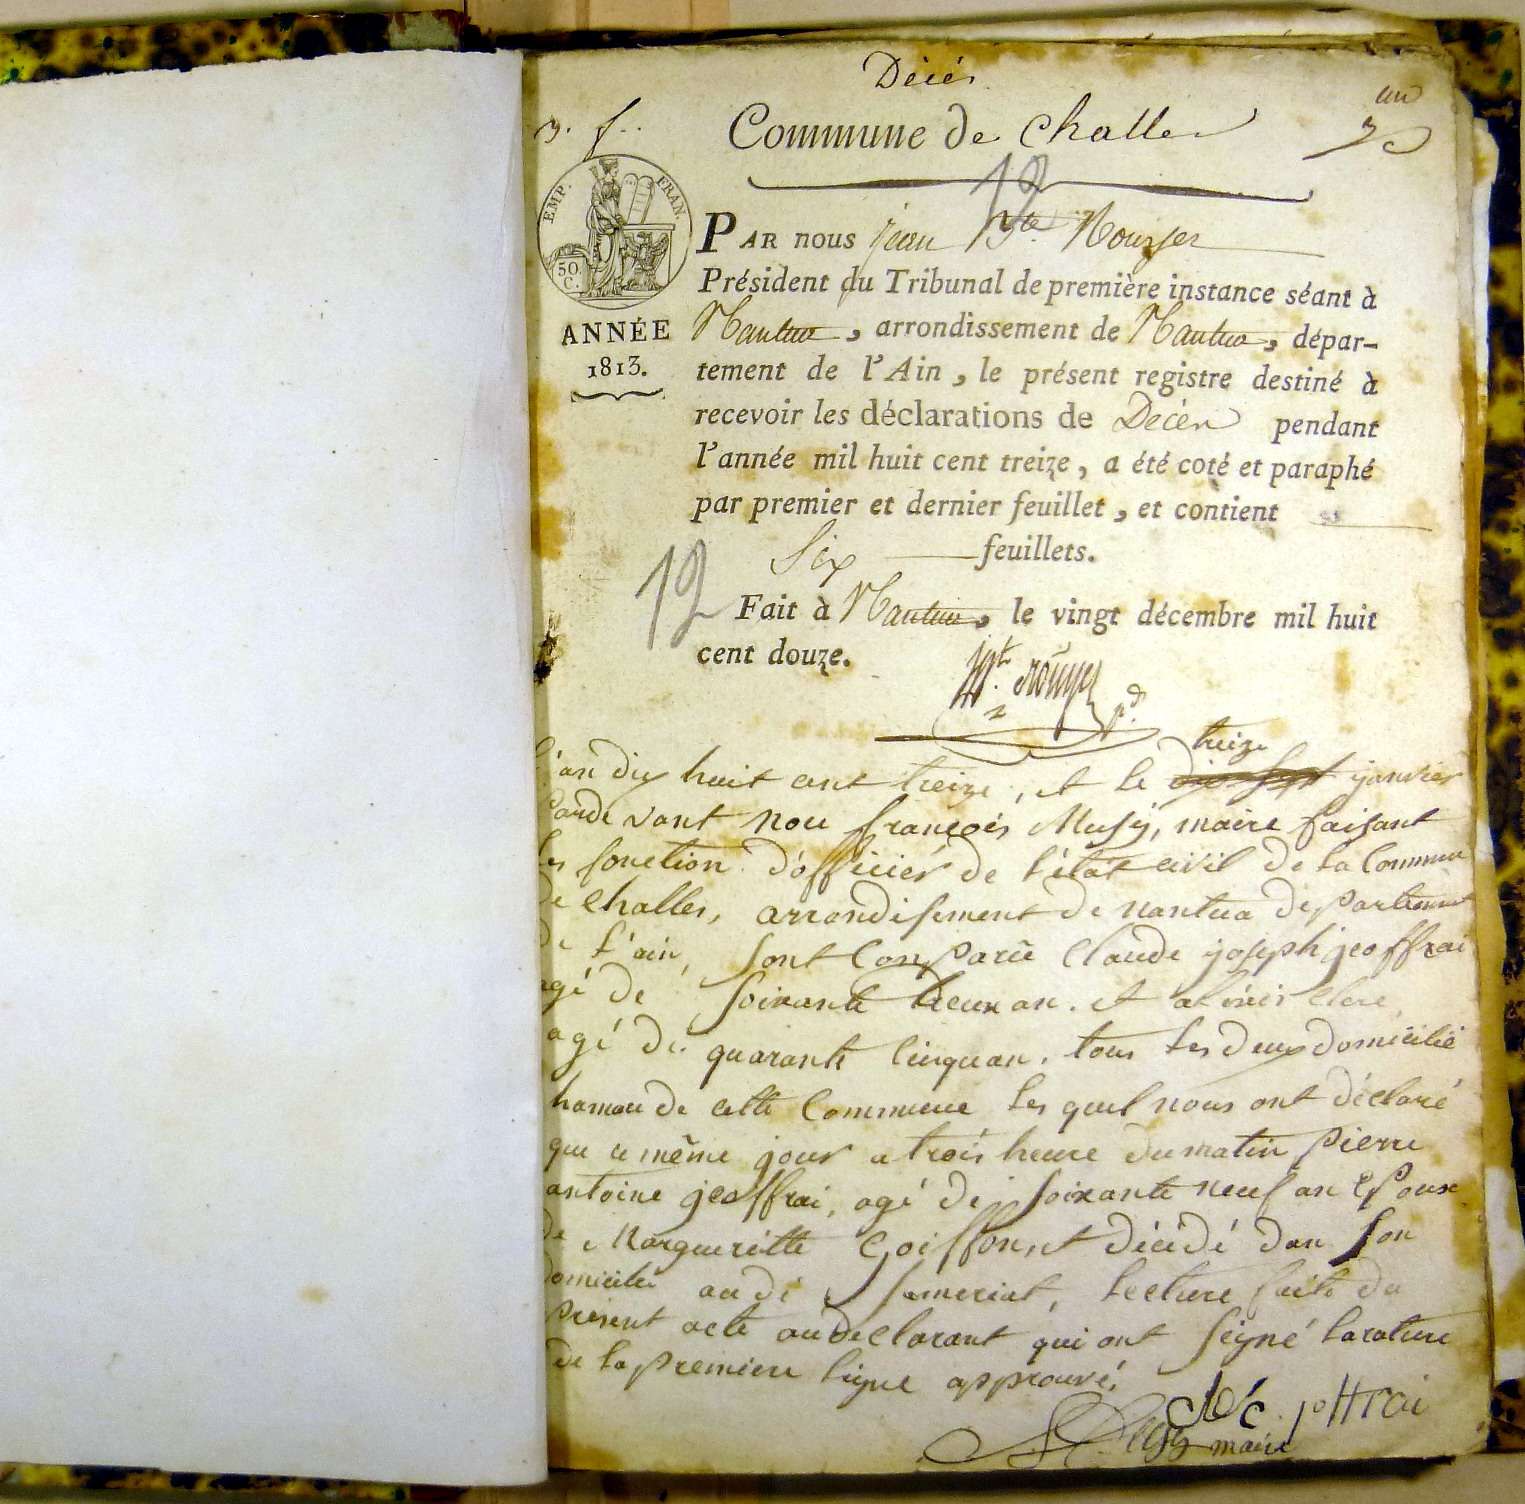 Décès
un
Commune de Challes
EMP. FRAN.
50. C.
ANNÉE
1813.
12
PAR nous jean Bte Rouyer
Président du Tribunal de première instance séant à
Nantua, arrondissement de Nantua, dépar-
tement de l'Ain, le présent registre destiné à
recevoir les déclarations de Décès pendant
l'année mil huit cent treize, a été coté et paraphé
par premier et dernier feuillet, et contient
Six feuillets.
12
Fait à Nantua, le vingt décembre mil huit
cent douze.
treize
l'an dix huit cent treize, et le dix sept janvier
parde vant nou françois Musy, maire faisant
les fonction d'officiér de l'état civil de la Commune
de Challes, arrondisement de nantua departement
de l'ain, sont Comparû Claude joseph jeoffrai
agé de soixante deux an. et
agé de quarante cinquan. tous les deux domicilié
hamau de cette Commune les quel nous ont déclaré
que ce même jour a trois heure du matin pierre
antoine jeoffrai, agé de soixante neuf an Epoux
de Margueritte Goiffon, et décédé dan son
domicile au de sumeriat, lecture faite du
présent acte au declarant qui ont seigné la rature
de la premiere ligne approuvé.
maire